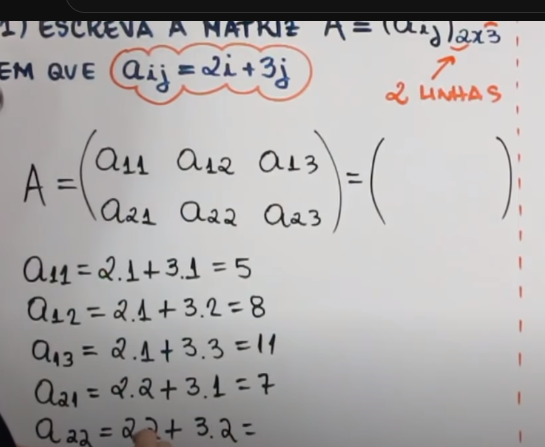 1) ESCREVA A MATRIZ A = (aij)2x3
EM QUE aij = 2i + 3j
2 LINHAS
A = ( a11 a12 a13 ) = ( )
a21 a22 a23
a11 = 2.1 + 3.1 = 5
a12 = 2.1 + 3.2 = 8
a13 = 2.1 + 3.3 = 11
a21 = 2.2 + 3.1 = 7
a22 = 2.2 + 3.2 =